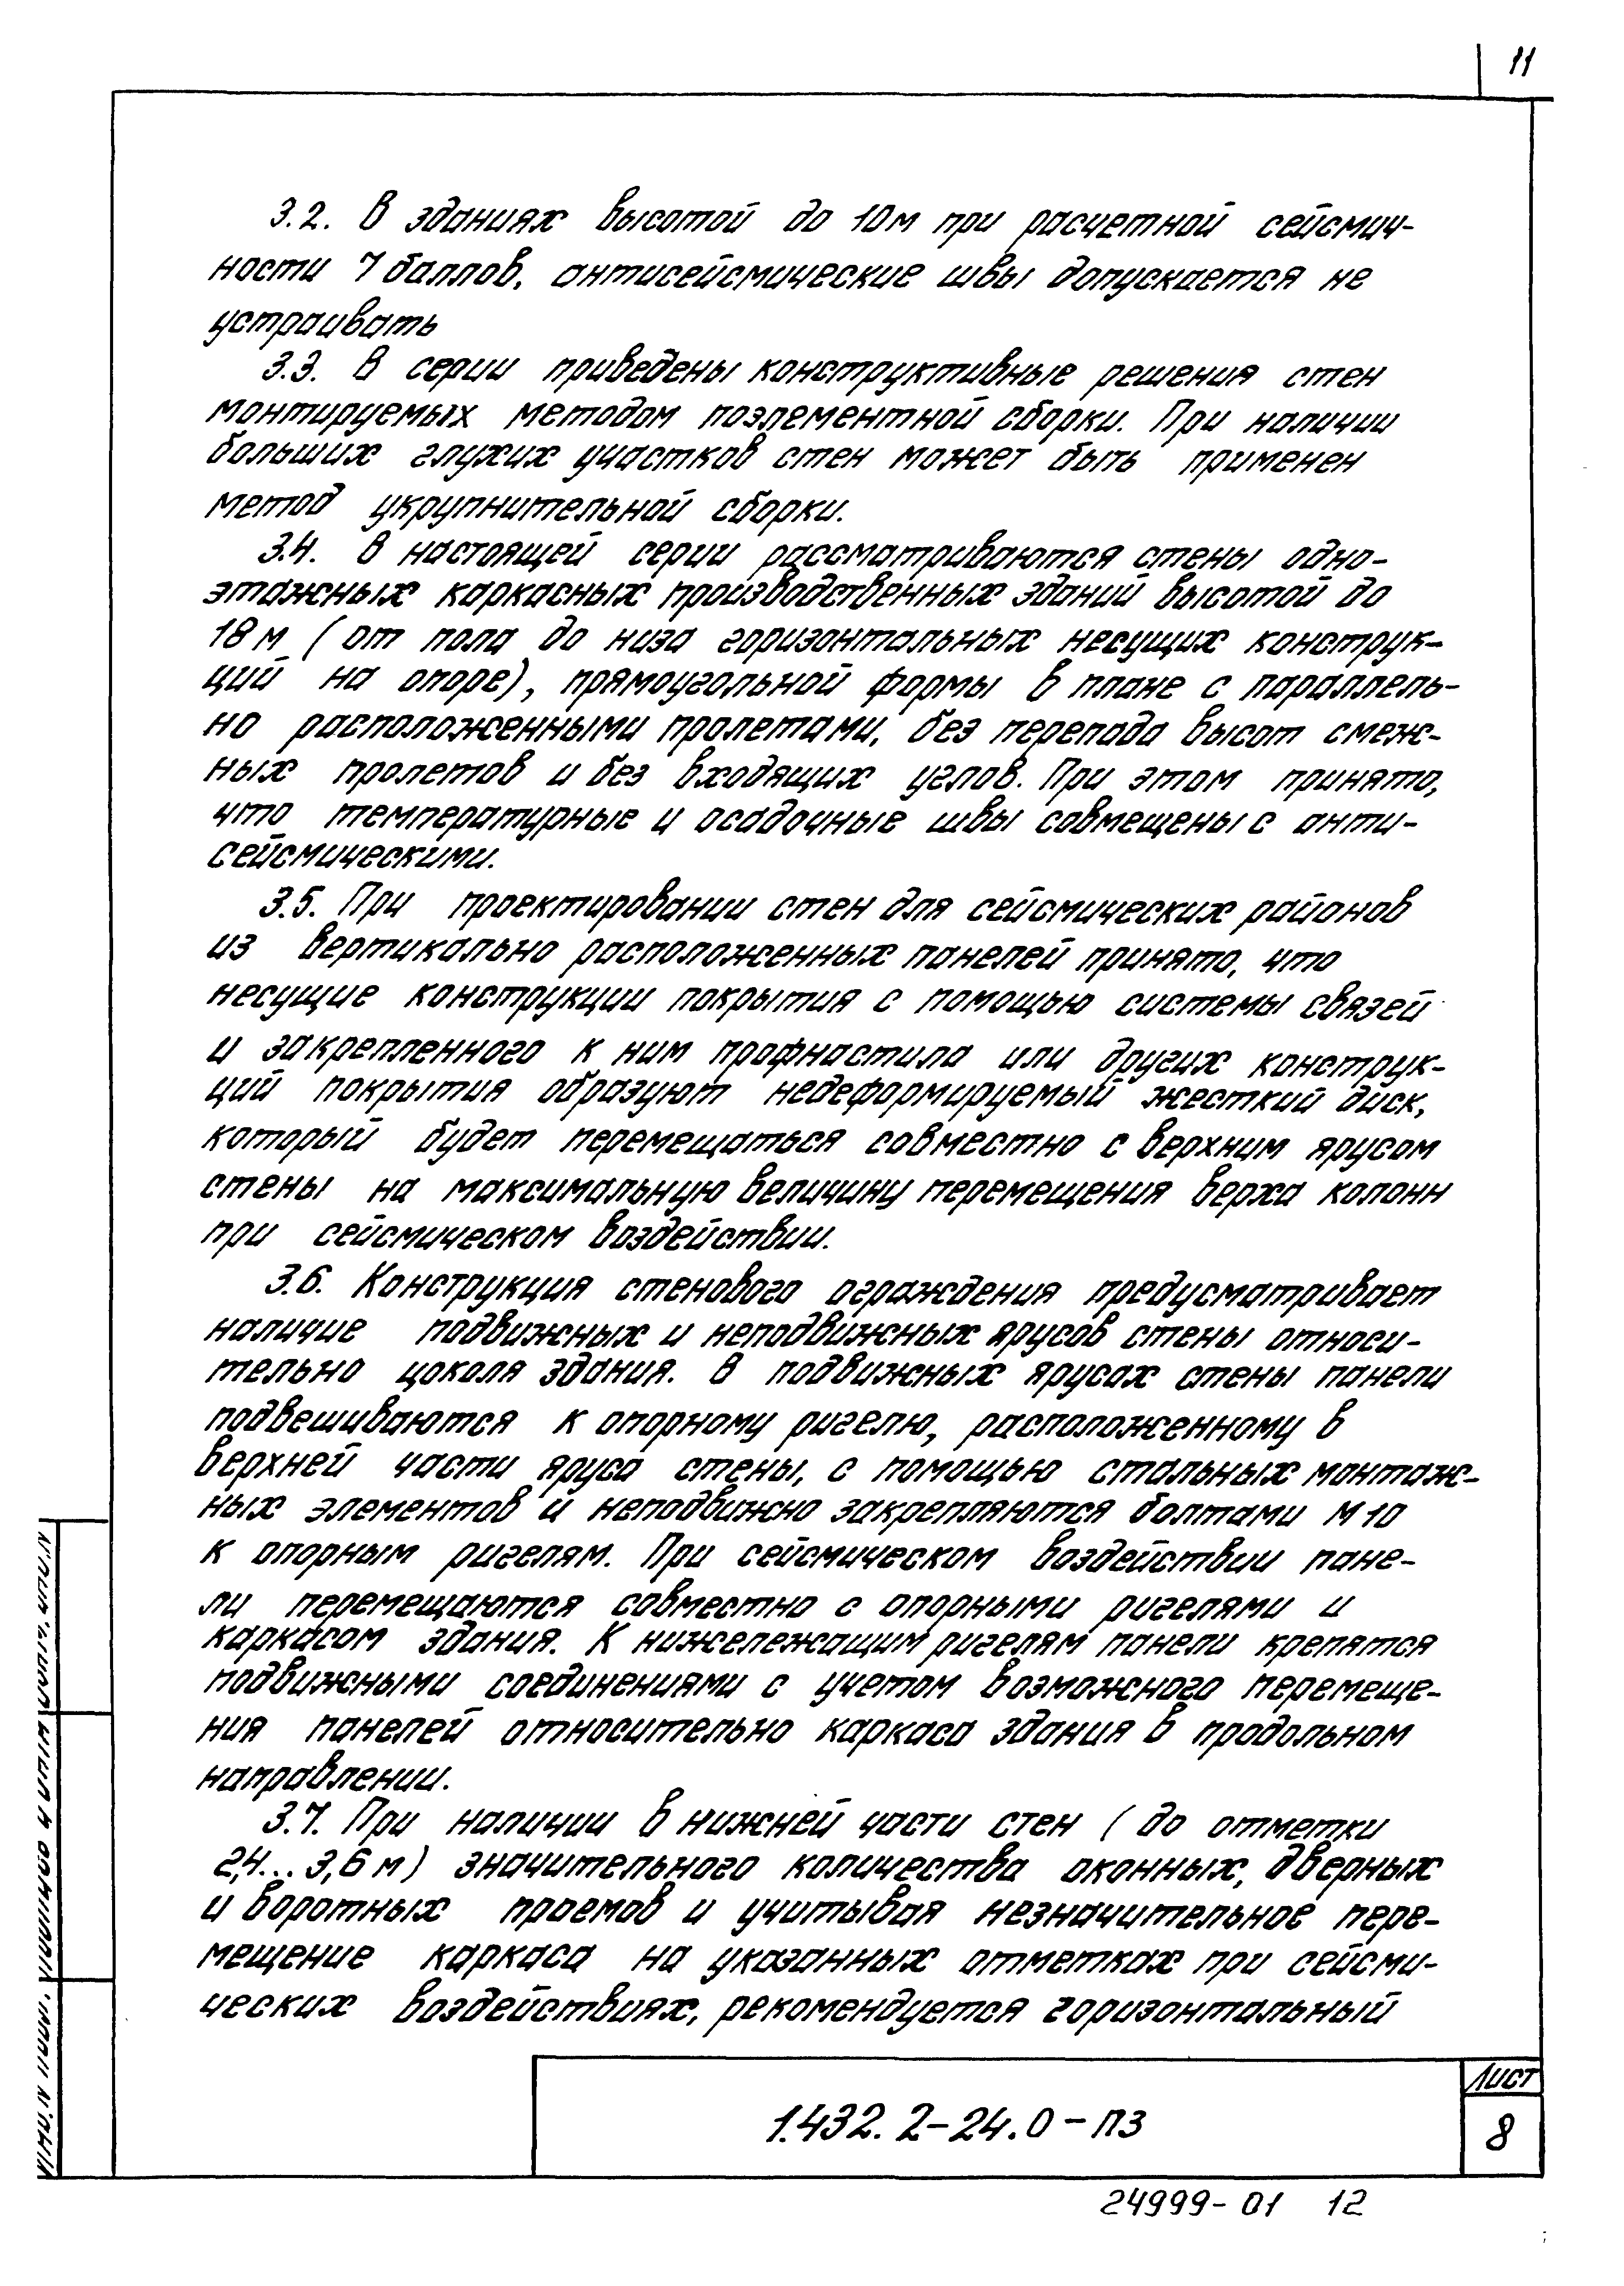 11
3.2. В зданиях высотой до 10м при расчетной сейсмич-
ности 7 баллов, антисейсмические швы допускается не
устраивать
3.3. В серии приведены конструктивные решения стен
монтируемых методом поэлементной сборки. При наличии
больших глухих участков стен может быть применен
метод укрупнительной сборки.
3.4. В настоящей серии рассматриваются стены одно-
этажных каркасных производственных зданий высотой до
18 м (от пола до низа горизонтальных несущих конструк-
ций на опоре), прямоугольной формы в плане с параллель-
но расположенными пролетами, без перепада высот смеж-
ных пролетов и без входящих углов. При этом принято,
что температурные и осадочные швы совмещены с анти-
сейсмическими.
3.5. При проектировании стен для сейсмических районов
из вертикально расположенных панелей принято, что
несущие конструкции покрытия с помощью системы связей
и закрепленного к ним профнастила или других конструк-
ций покрытия образуют недеформируемый жесткий диск,
который будет перемещаться совместно с верхним ярусом
стены на максимальную величину перемещения верха колонн
при сейсмическом воздействии.
3.6. Конструкция стенового ограждения предусматривает
наличие подвижных и неподвижных ярусов стены относи-
тельно цоколя здания. В подвижных ярусах стены панели
подвешиваются к опорному ригелю, расположенному в
верхней части яруса стены, с помощью стальных монтаж-
ных элементов и неподвижно закрепляются болтами М10
к опорным ригелям. При сейсмическом воздействии пане-
ли перемещаются совместно с опорными ригелями и
каркасом здания. К нижележащим ригелям панели крепятся
подвижными соединениями с учетом возможного перемеще-
ния панелей относительно каркаса здания в продольном
направлении.
3.7. При наличии в нижней части стен (до отметки
2,4...3,6 м) значительного количества оконных, дверных
и воротных проемов и учитывая незначительное пере-
мещение каркаса на указанных отметках при сейсми-
ческих воздействиях, рекомендуется горизонтальный
1.432.2-24.0-ПЗ
Лист
8
24999-01 12